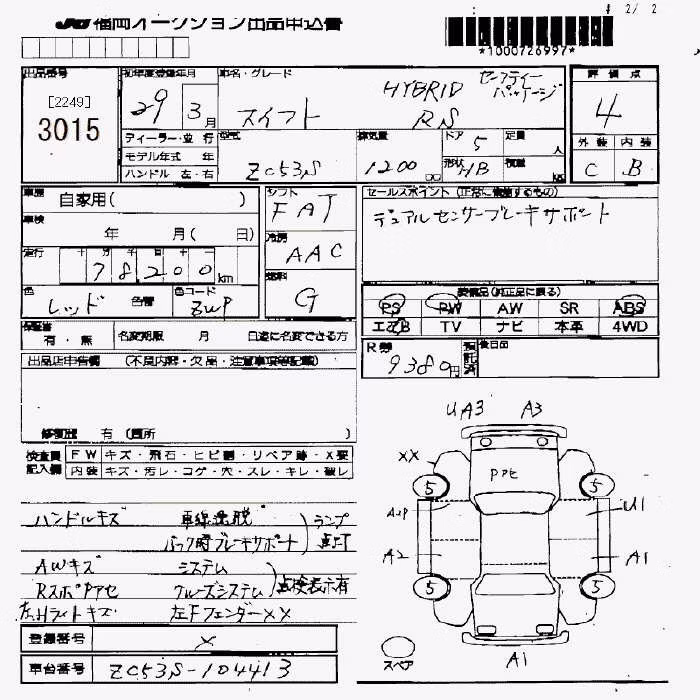 JAA 福岡オークション出品申込書
2/ 2
*1000726997*
出品番号
[2249]
3015
初年度登録年月
29年 3月
車名・グレード
スイフト HYBRID RS セーフティーパッケージ
評価点
4
外装 内装
C B
ディーラー・並行
モデル年式 年
ハンドル 左・右
型式
ZC53S
排気量
1200 cc
ドア 5
形状 HB
定員 人
積載 kg
車歴 自家用( )
車検 年 月( 日)
走行
十 万 千 百 十 一
78,200 km
色 レッド 色替
色コード ZWP
シフト
FAT
冷房
AAC
燃料
G
セールスポイント (正常に機能するもの)
デュアルセンサーブレーキサポート
装備品(純正品に限る)
PS PW AW SR ABS
エアB TV ナビ 本革 4WD
保証書 有・無
名変期限 月 日迄に名変できる方
R券 9380円
預託済
後日品
出品店申告欄 (不具合内容・欠品・注意事項等記載)
修復歴 有 (箇所 )
検査員記入欄
FW キズ・飛石・ヒビ割・リペア跡・X要
内装 キズ・汚レ・コゲ・穴・スレ・キレ・破レ
ハンドルキズ 車線逸脱 ランプ
バック時ブレーキサポート 点灯
AWキズ システム
RスポPアセ クルーズシステム 点検表示有
左Hライトキズ 左Fフェンダー××
登録番号 ×
車台番号 ZC53S-104413
UA3 A3
XX Pアセ
5 5
A2P U1
A2 A1
5 5
スペア
A1